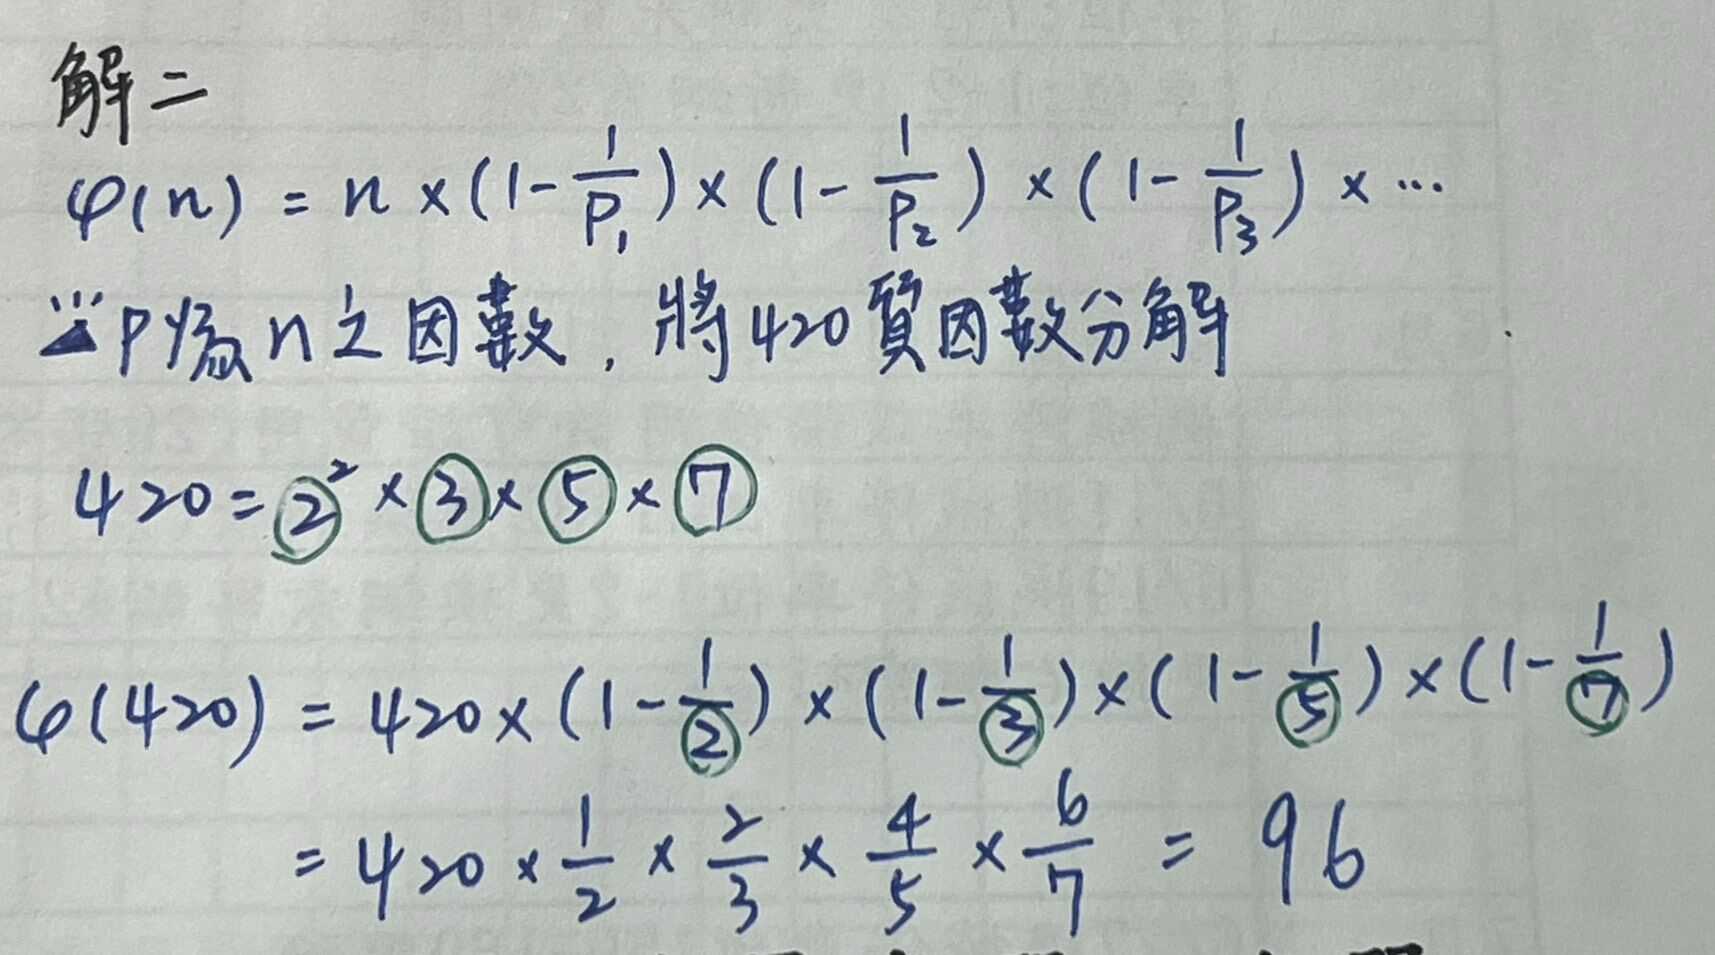 解二
φ(n) = n × (1 - 1/P₁) × (1 - 1/P₂) × (1 - 1/P₃) × ...
P為n之因數, 將420質因數分解
420 = 2² × 3 × 5 × 7
φ(420) = 420 × (1 - 1/2) × (1 - 1/3) × (1 - 1/5) × (1 - 1/7)
= 420 × 1/2 × 2/3 × 4/5 × 6/7 = 96